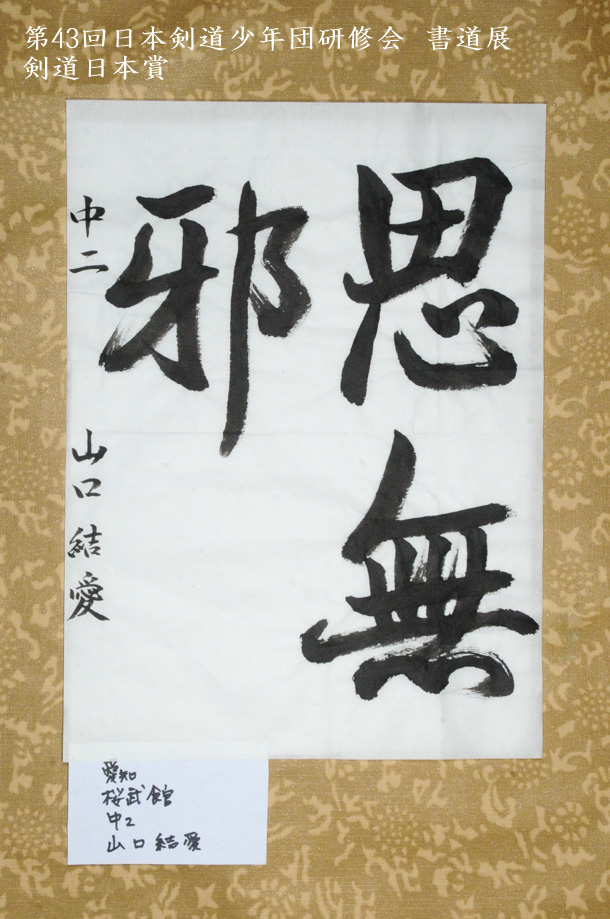 第43回日本剣道少年団研修会 書道展
剣道日本賞
思無
邪
中二 山口結愛
愛知
桜武館
中2
山口結愛